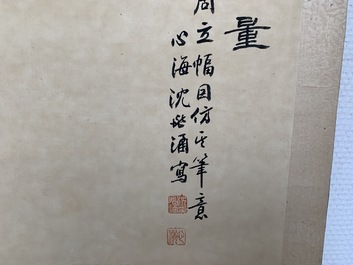 量
周立幅因仿其筆意
心海沈兆涌寫